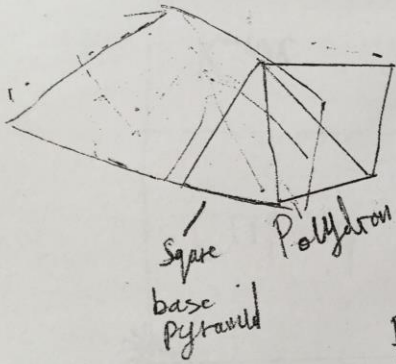 Sqare
base
pyramid
Polydron